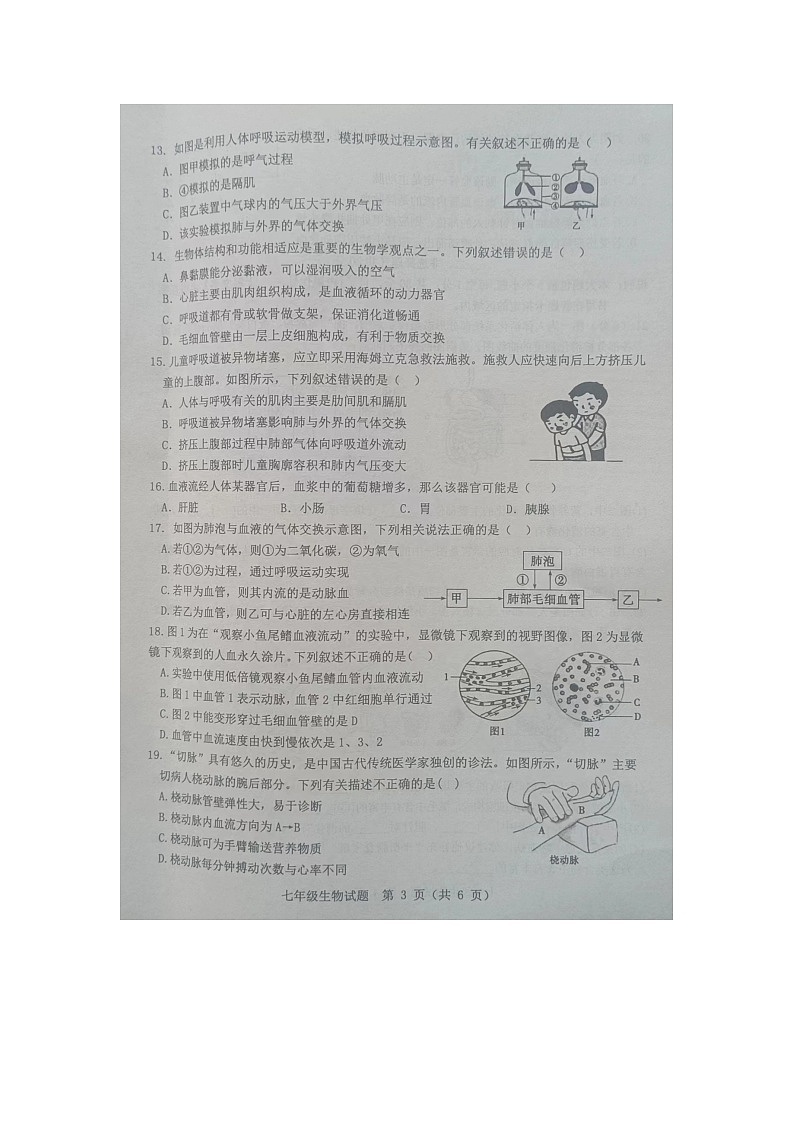 13. 如图是利用人体呼吸运动模型，模拟呼吸过程示意图。有关叙述不正确的是（ ）
A. 图甲模拟的是呼气过程
B. ④模拟的是隔肌
C. 图乙装置中气球内的气压大于外界气压
D. 该实验模拟肺与外界的气体交换
①
②
③
④
甲 乙
14. 生物体结构和功能相适应是重要的生物学观点之一。下列叙述错误的是（ ）
A. 鼻黏膜能分泌黏液，可以湿润吸入的空气
B. 心脏主要由肌肉组织构成，是血液循环的动力器官
C. 呼吸道都有骨或软骨做支架，保证消化道畅通
D. 毛细血管壁由一层上皮细胞构成，有利于物质交换
15. 儿童呼吸道被异物堵塞，应立即采用海姆立克急救法施救。施救人应快速向后上方挤压儿
童的上腹部。如图所示，下列叙述错误的是（ ）
A. 人体与呼吸有关的肌肉主要是肋间肌和膈肌
B. 呼吸道被异物堵塞影响肺与外界的气体交换
C. 挤压上腹部过程中肺部气体向呼吸道外流动
D. 挤压上腹部时儿童胸廓容积和肺内气压变大
16. 血液流经人体某器官后，血浆中的葡萄糖增多，那么该器官可能是（ ）
A. 肝脏 B. 小肠 C. 胃 D. 胰腺
17. 如图为肺泡与血液的气体交换示意图，下列相关说法正确的是（ ）
A. 若①②为气体，则①为二氧化碳，②为氧气
B. 若①②为过程，通过呼吸运动实现
C. 若甲为血管，则其内流的是动脉血
D. 若乙为血管，则乙可与心脏的左心房直接相连
肺泡
① ②
甲 肺部毛细血管 乙
18. 图1为在“观察小鱼尾鳍血液流动”的实验中，显微镜下观察到的视野图像，图2为显微
镜下观察到的人血永久涂片。下列叙述不正确的是（ ）
A. 实验中使用低倍镜观察小鱼尾鳍血管内血液流动
B. 图1中血管1表示动脉，血管2中红细胞单行通过
C. 图2中能变形穿过毛细血管壁的是D
D. 血管中血流速度由快到慢依次是1、3、2
1
2
3
图1
A
B
C
D
图2
19. “切脉”具有悠久的历史，是中国古代传统医学家独创的诊法。如图所示，“切脉”主要
切病人桡动脉的腕后部分。下列有关描述不正确的是( )
A. 桡动脉管壁弹性大，易于诊断
B. 桡动脉内血流方向为A→B
C. 桡动脉可为手臂输送营养物质
D. 桡动脉每分钟搏动次数与心率不同
A
B
桡动脉
七年级生物试题 第 3 页（共 6 页）